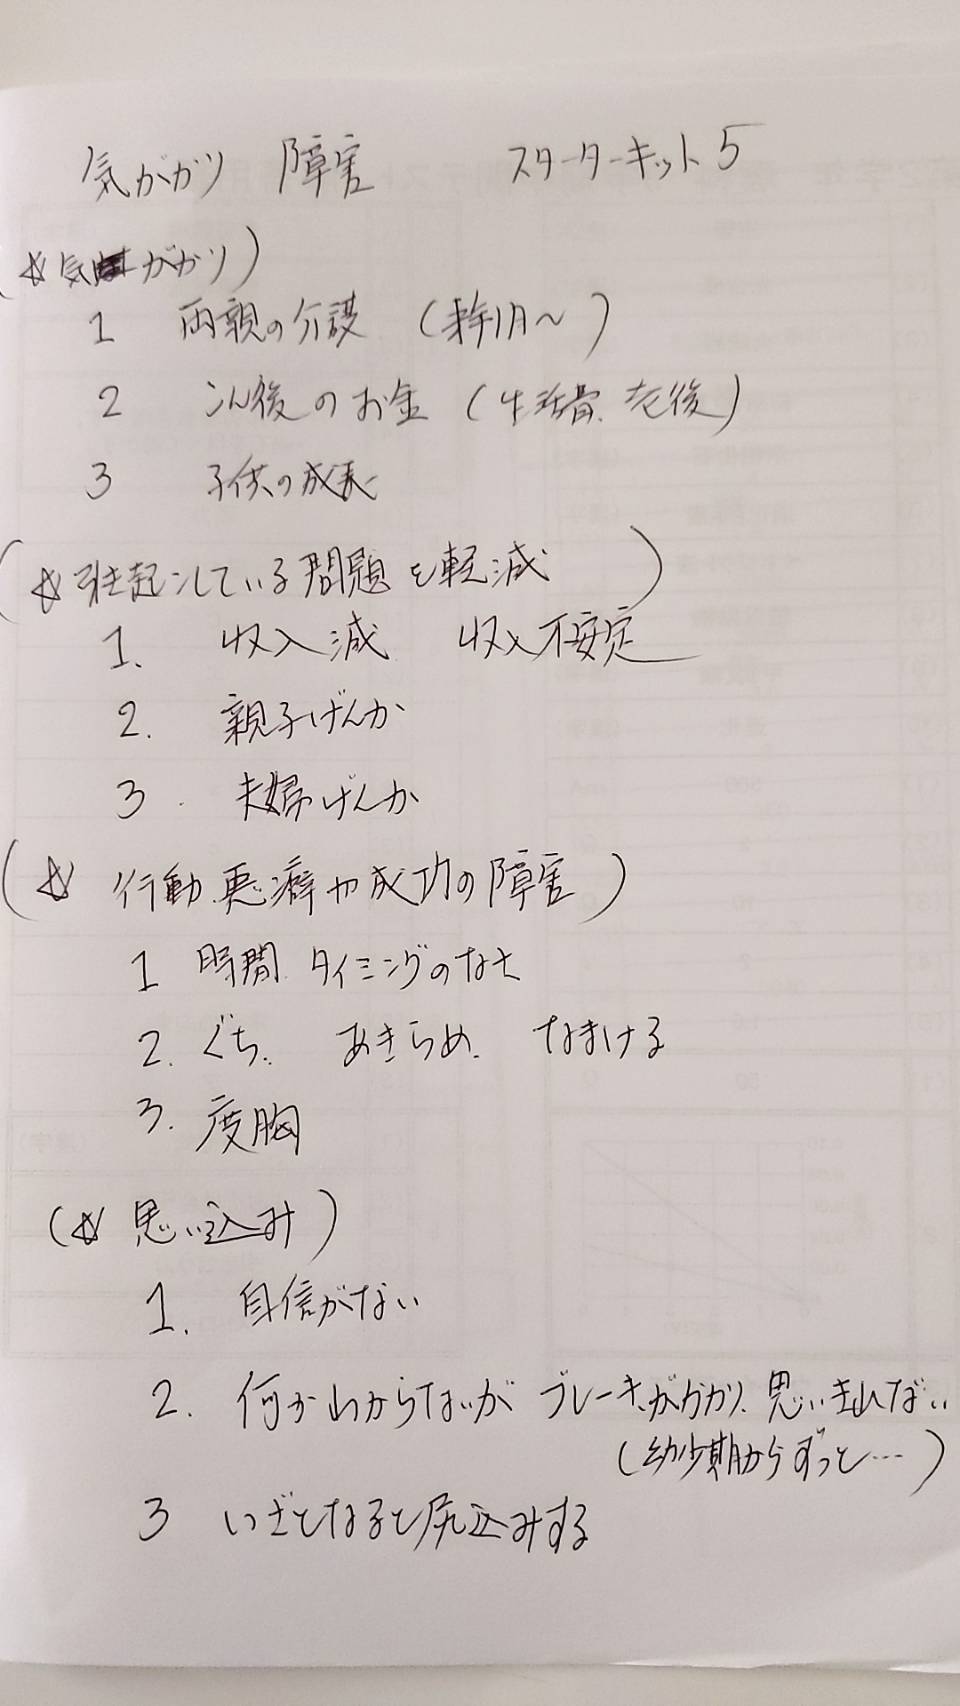 気がかり 障害 スターターキット5
(☆気がかり)
1 両親の介護 (来年1月〜)
2 こん後のお金 (生活費、老後)
3 子供の成長
(☆引き起こしている問題を軽減)
1. 収入減 収入不安定
2. 親子げんか
3. 夫婦げんか
(☆ 行動、悪癖や成功の障害)
1 時間、タイミングのなさ
2. ぐち、 あきらめ、 なまける
3. 度胸
(☆ 思い込み)
1. 自信がない
2. 何かわからないが ブレーキがかかり、思いきれない
(幼少期からずっと…)
3 いざとなると尻込みする